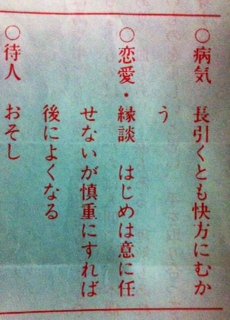 ○病気　長引くとも快方にむか
う
○恋愛・縁談　はじめは意に任
せないが慎重にすれば
後によくなる
○待人　おそし